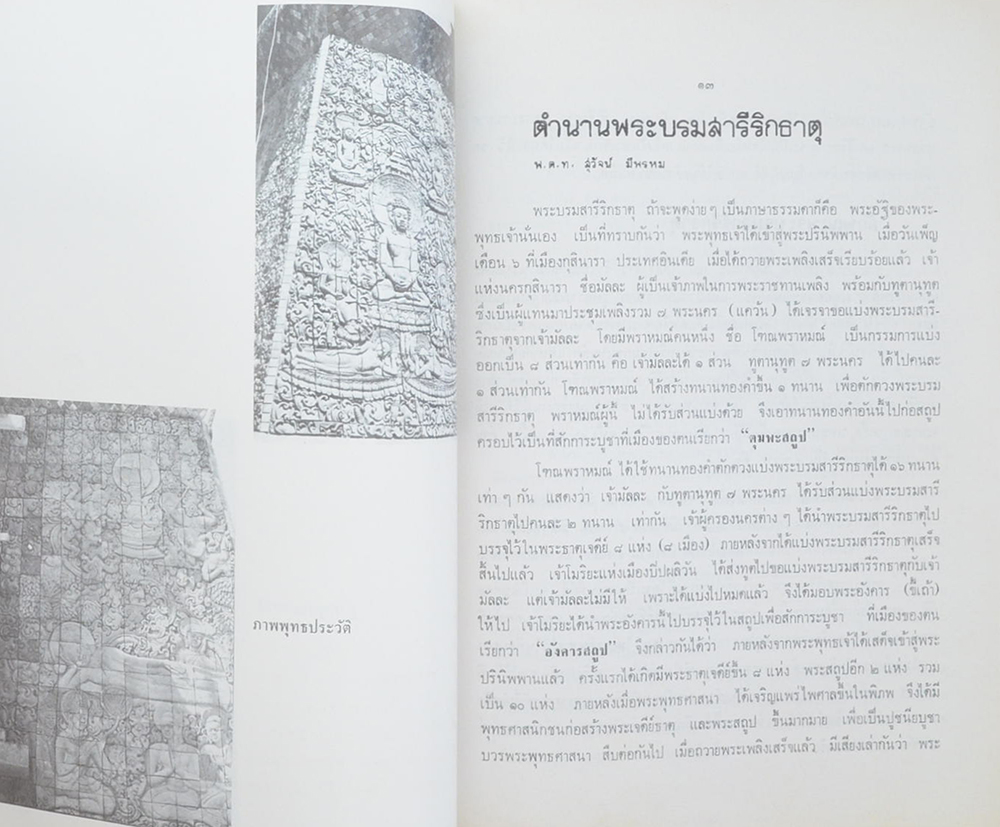 ภาพพุทธประวัติ
๑๓
ตำนานพระบรมสารีริกธาตุ
พ.ต.ท. สุรัจน์ มีพรหม
พระบรมสารีริกธาตุ ถ้าจะพูดง่ายๆ เป็นภาษาธรรมดาก็คือ พระอัฐิของพระ-
พุทธเจ้านั่นเอง เป็นที่ทราบกันว่า พระพุทธเจ้าได้เข้าสู่พระปรินิพพาน เมื่อวันเพ็ญ
เดือน ๖ ที่เมืองกุสินารา ประเทศอินเดีย เมื่อได้ถวายพระเพลิงเสร็จเรียบร้อยแล้ว เจ้า
แห่งนครกุสินารา ชื่อมัลละ ผู้เป็นเจ้าภาพในการพระราชทานเพลิง พร้อมกับทูตานุทูต
ซึ่งเป็นผู้แทนมาประชุมเพลิงรวม ๗ พระนคร (แคว้น) ได้เจรจาขอแบ่งพระบรมสารี-
ริกธาตุจากเจ้ามัลละ โดยมีพราหมณ์คนหนึ่ง ชื่อ โฑณพราหมณ์ เป็นกรรมการแบ่ง
ออกเป็น ๘ ส่วนเท่ากัน คือ เจ้ามัลละได้ ๑ ส่วน ทูตานุทูต ๗ พระนคร ได้ไปคนละ
๑ ส่วนเท่ากัน โฑณพราหมณ์ ได้สร้างทนานทองคำขึ้น ๑ ทนาน เพื่อตักตวงพระบรม
สารีริกธาตุ พราหมณ์ผู้นี้ ไม่ได้รับส่วนแบ่งด้วย จึงเอาทนานทองคำอันนี้ไปก่อสถูป
ครอบไว้เป็นที่สักการะบูชาที่เมืองของตนเรียกว่า “ตุมพะสถูป”
โฑณพราหมณ์ ได้ใช้ทนานทองคำตักตวงแบ่งพระบรมสารีริกธาตุได้ ๑๖ ทนาน
เท่า ๆ กัน แสดงว่า เจ้ามัลละ กับทูตานุทูต ๗ พระนคร ได้รับส่วนแบ่งพระบรมสารี
ริกธาตุไปคนละ ๒ ทนาน เท่ากัน เจ้าผู้ครองนครต่าง ๆ ได้นำพระบรมสารีริกธาตุไป
บรรจุไว้ในพระธาตุเจดีย์ ๘ แห่ง (๘ เมือง) ภายหลังจากได้แบ่งพระบรมสารีริกธาตุเสร็จ
สิ้นไปแล้ว เจ้าโมริยะแห่งเมืองปิปผลิวัน ได้ส่งทูตไปขอแบ่งพระบรมสารีริกธาตุกับเจ้า
มัลละ แต่เจ้ามัลละไม่มีให้ เพราะได้แบ่งไปหมดแล้ว จึงได้มอบพระอังคาร (ขี้เถ้า)
ให้ไป เจ้าโมริยะได้นำพระอังคารนี้ไปบรรจุไว้ในสถูปเพื่อสักการะบูชา ที่เมืองของตน
เรียกว่า “อังคารสถูป” จึงกล่าวกันได้ว่า ภายหลังจากพระพุทธเจ้าได้เสด็จเข้าสู่พระ
ปรินิพพานแล้ว ครั้งแรกได้เกิดมีพระธาตุเจดีย์ขึ้น ๘ แห่ง พระสถูปอีก ๒ แห่ง รวม
เป็น ๑๐ แห่ง ภายหลังเมื่อพระพุทธศาสนา ได้เจริญแพร่ไพศาลขึ้นในพิภพ จึงได้มี
พุทธศาสนิกชนก่อสร้างพระเจดีย์ธาตุ และพระสถูป ขึ้นมากมาย เพื่อเป็นปูชนียบูชา
บวรพระพุทธศาสนา สืบต่อกันไป เมื่อถวายพระเพลิงเสร็จแล้ว มีเสียงเล่ากันว่า พระ